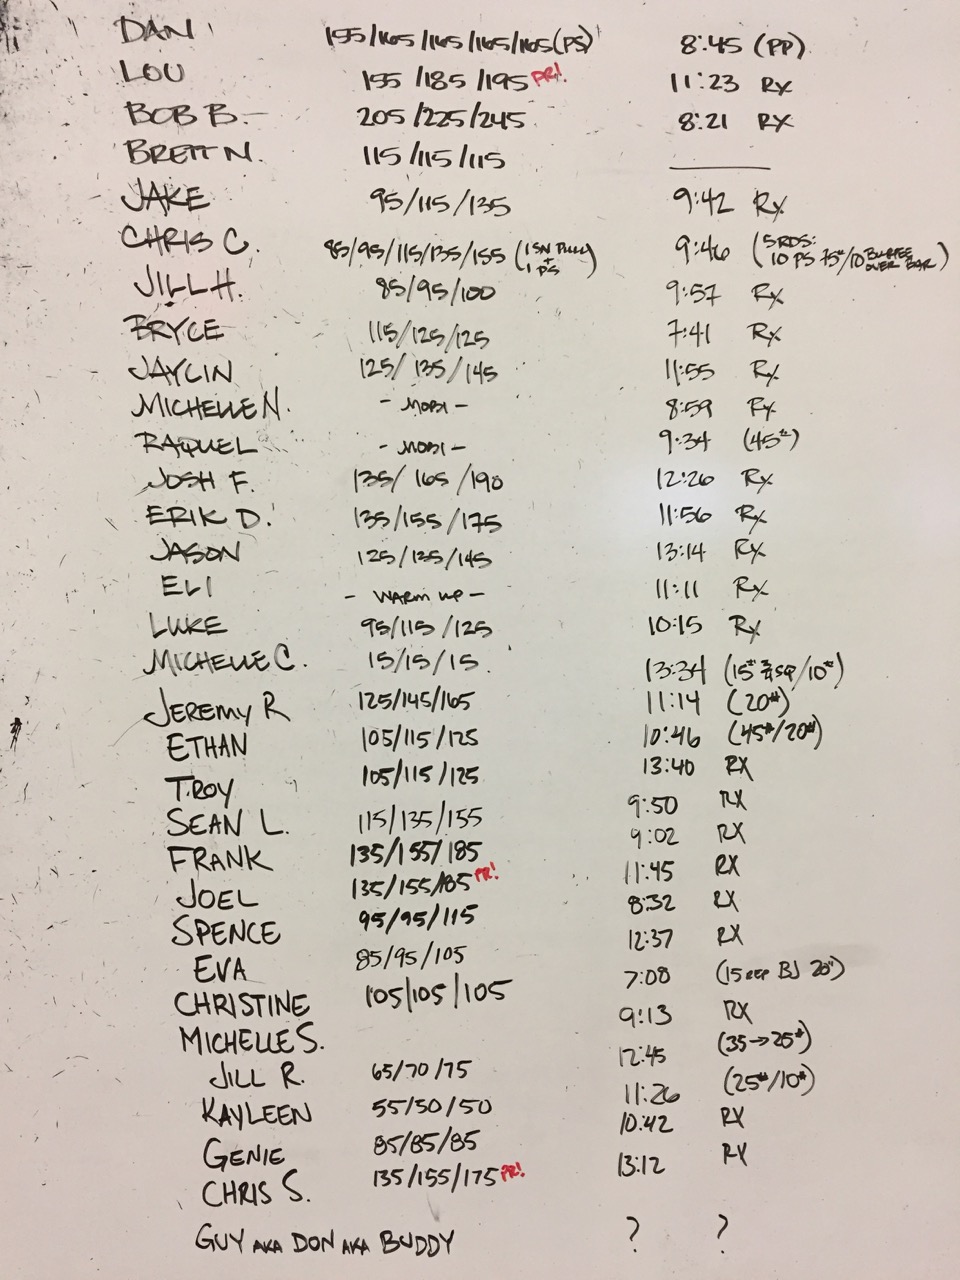 DAN 155/165/165/165/165(PS) 8:45 (PP)
LOU 155/185/195 PR! 11:23 Rx
BOB B. 205/225/245 8:21 RX
BRETT N. 115/115/115
JAKE 95/115/135 9:42 Rx
CHRIS C. 85/95/115/135/155 (1 SN PULL + 1 PS) 9:46 (5 RDS: 10 PS 75#/10 BURPEES OVER BAR)
JILL H. 85/95/100 9:57 Rx
BRYCE 115/125/125 7:41 Rx
JAYLIN 125/135/145 11:55 Rx
MICHELLE N. - MOBI - 8:59 Rx
RAQUEL - MOBI - 9:34 (45#)
JOSH F. 135/165/190 12:26 Rx
ERIK D. 135/155/175 11:56 Rx
JASON 125/135/145 13:14 Rx
ELI - WARM UP - 11:11 Rx
LUKE 95/115/125 10:15 Rx
MICHELLE C. 15/15/15 13:34 (15# SQ/10#)
JEREMY R 125/145/165 11:14 (20#)
ETHAN 105/115/125 10:46 (45#/20#)
TROY 105/115/125 13:40 RX
SEAN L. 115/135/155 9:50 RX
FRANK 135/155/185 9:02 RX
JOEL 135/155/185 PR! 11:45 RX
SPENCE 95/95/115 8:32 RX
EVA 85/95/105 12:37 RX
CHRISTINE 105/105/105 7:08 (15 REP BJ 20")
MICHELLE S. 9:13 RX
JILL R. 65/70/75 12:45 (35→25#)
KAYLEEN 55/50/50 11:26 (25#/10#)
GENIE 85/85/85 10:42 RX
CHRIS S. 135/155/175 PR! 13:12 RX
GUY AKA DON AKA BUDDY ? ?